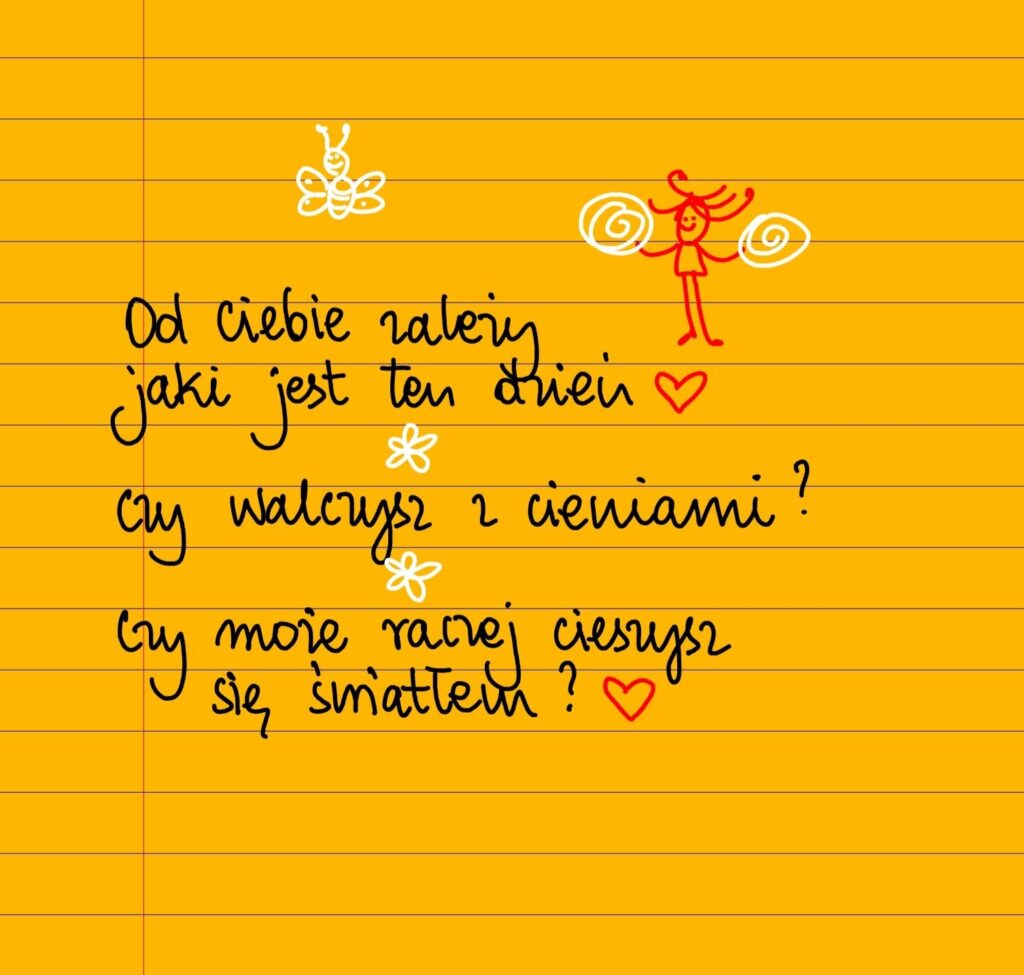 Od Ciebie zależy
jaki jest ten dzień
czy walczysz z cieniami?
czy może raczej cieszysz
się światłem?